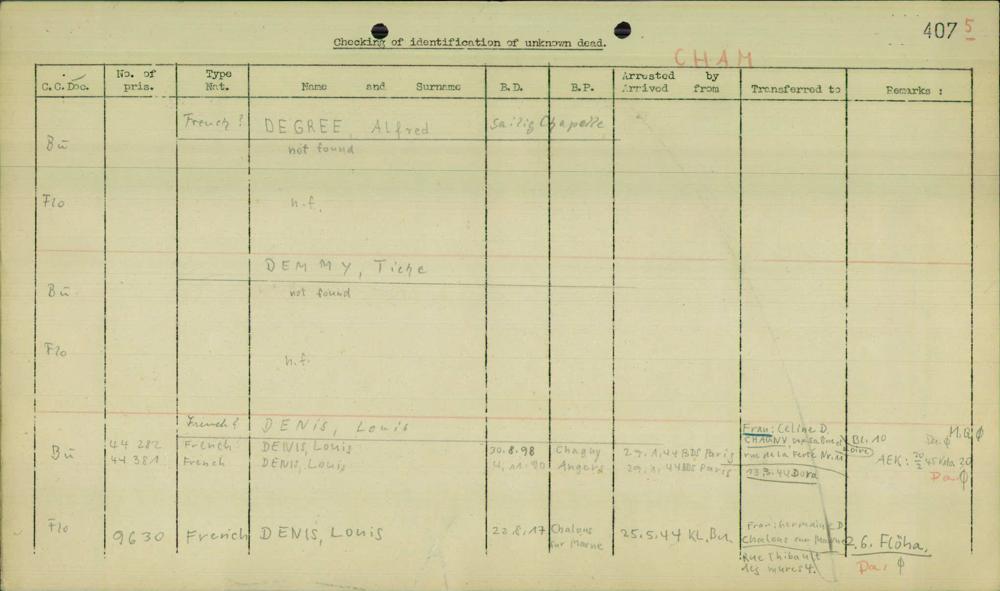 407 5
Checking of identification of unknown dead.
CHAM
C.C.Doc. No. of pris. Type Nat. Name and Surname B.D. B.P. Arrested by Arrived from Transferred to Remarks :
French? DEGREE, Alfred Sailig Chapelle
Bü not found
Flo n.f.
DEMMY, Tiche
Bü not found
Flo n.f.
French? DENIS, Louis
Bü 44 282 French DENIS, Louis 30.8.98 Chagny 29.1.44 BDS Paris
44 381 French DENIS, Louis 4.11.90 Angers 29.1.44 BDS Paris
Frau: Celine D.
CHAGNY
rue de la Ferté Nr.
13.3.44 Dora
Bl. 10
AEK: 20/2 45
Da. φ
Flo 9630 French DENIS, Louis 22.8.17 Chalons sur Marne 25.5.44 KL.Bu.
Frau: Germaine D.
Chalons sur Marne
Rue Thibault
des mures 4.
2.6. Flöha.
Da. φ